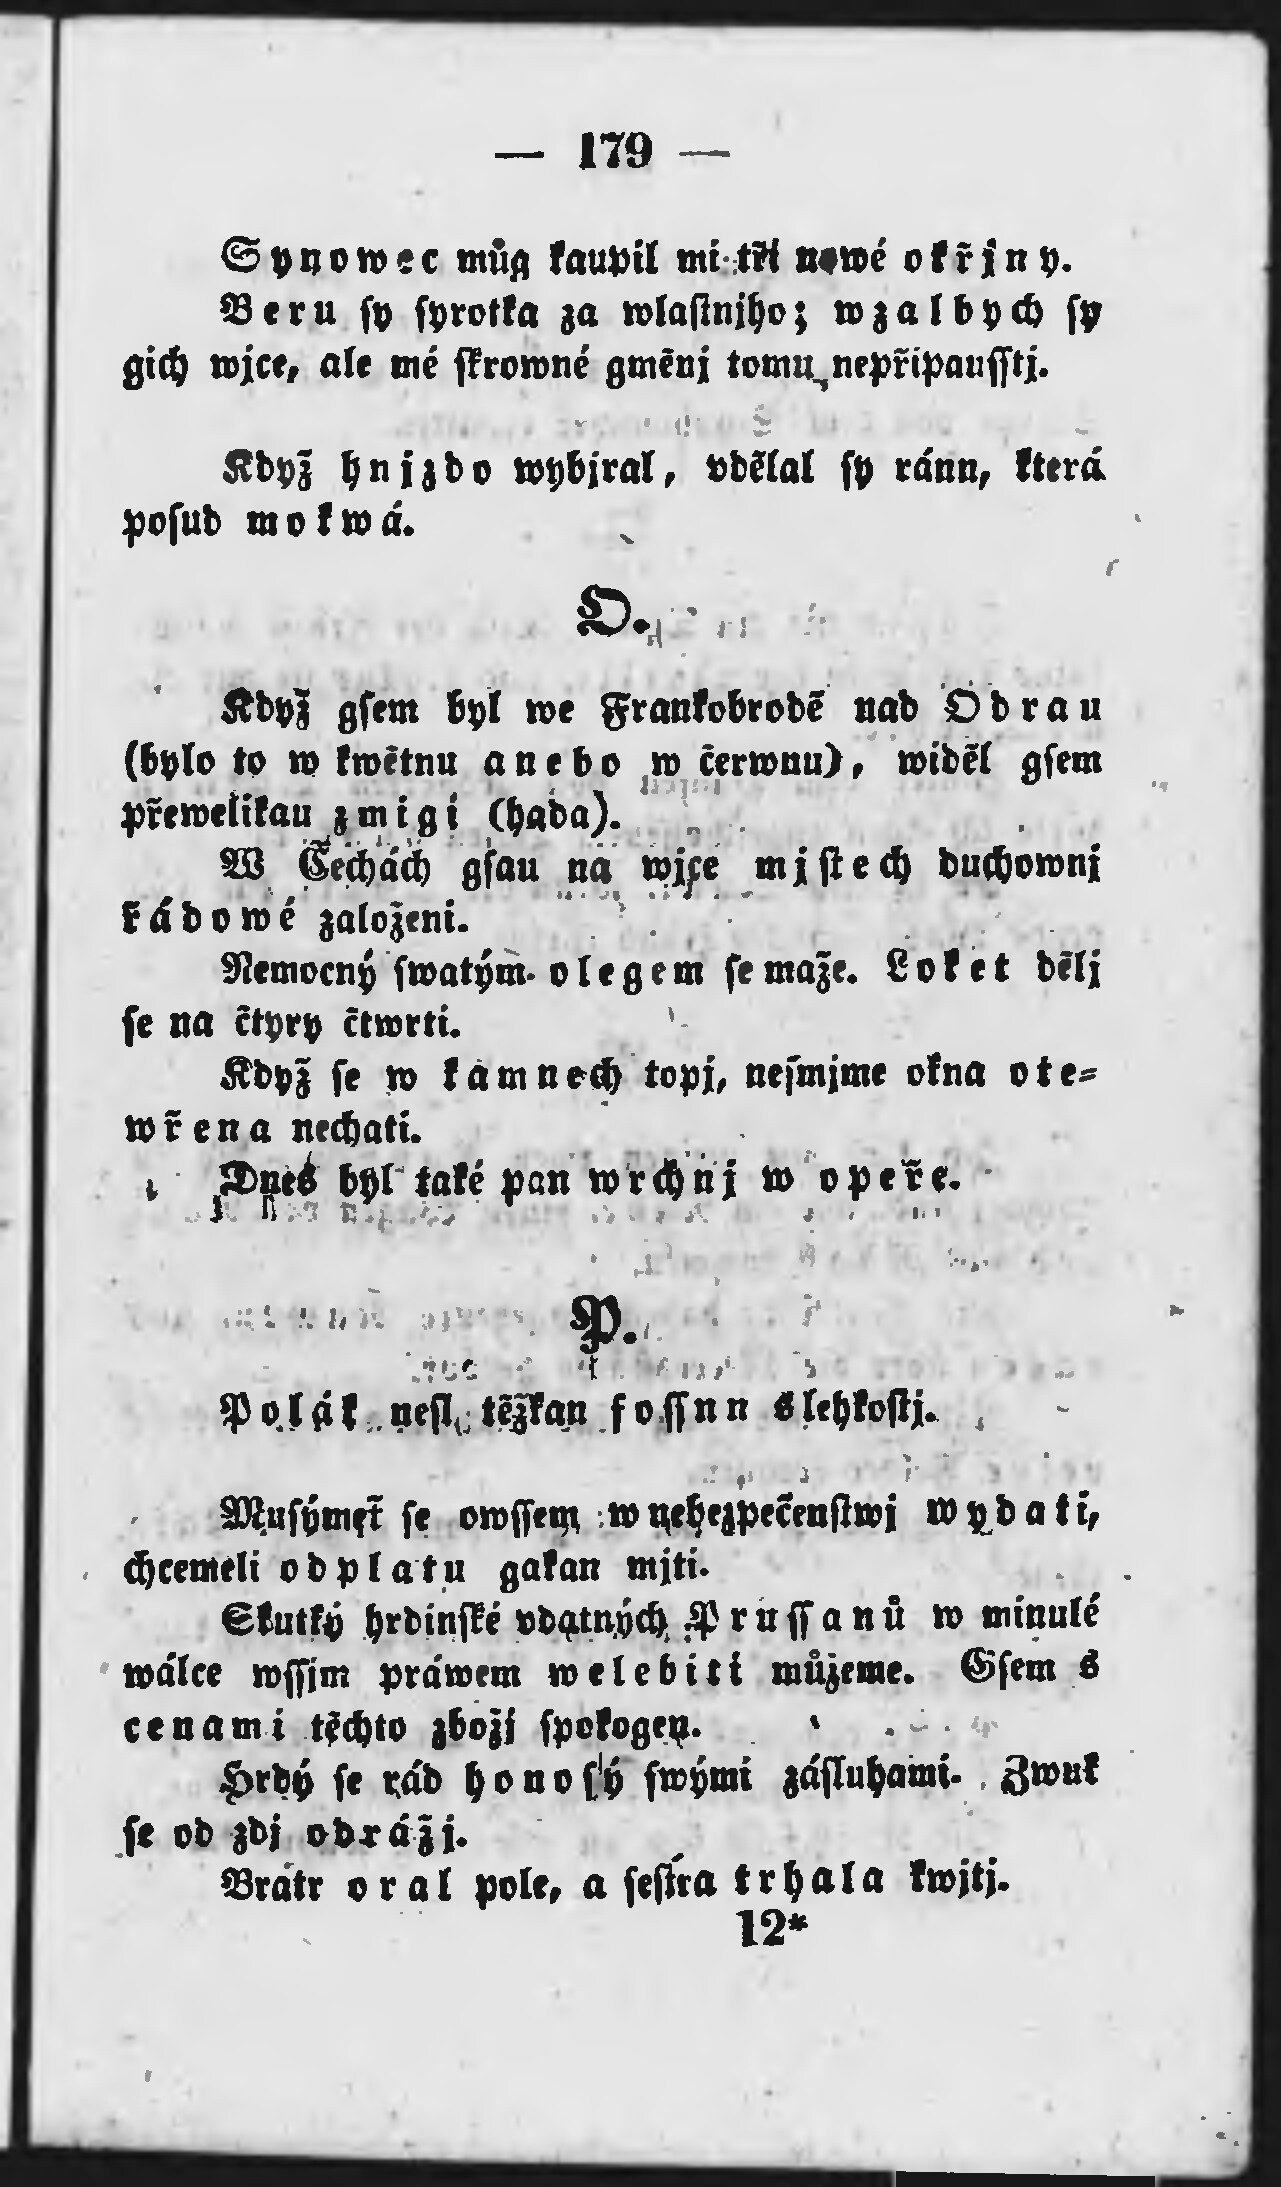 — 179 —
Synowec můg kaupil mi tři nowé okřjny.
Beru sy syrotka za wlastnjho; wzalbych sy
gich wjce, ale mé skrowné gměnj tomu nepřipausstj.
Když hnjzdo wybjral, vdělal sy ránn, která
posud mokwá.
O.
Když gsem byl we Frankobrodě nad Odrau
(bylo to w kwětnu anebo w čerwnu), widěl gsem
přewelikau zmigi (hada).
W Čechách gsau na wjce mjstech duchownj
kádowé založeni.
Nemocný swatým olegem se maže. Loket dělj
se na čtyry čtwrti.
Když se w kamnech topj, nesmjme okna ote=
wřena nechati.
Dnes byl také pan wrchnj w opeře.
P.
Polák nesl těžkan fossnn s lehkostj.
Musýmeť se owssem w nebezpečenstwj wydati,
chcemeli odplatu gakan mjti.
Skutky hrdinské vdatných Prussanů w minulé
wálce wssjm práwem welebiti můžeme. Gsem s
cenami těchto zbožj spokogen.
Hrdý se rád honosý swými zásluhami. Zwuk
se od zdj odrážj.
Bratr oral pole, a sestra trhala kwjtj.
12*